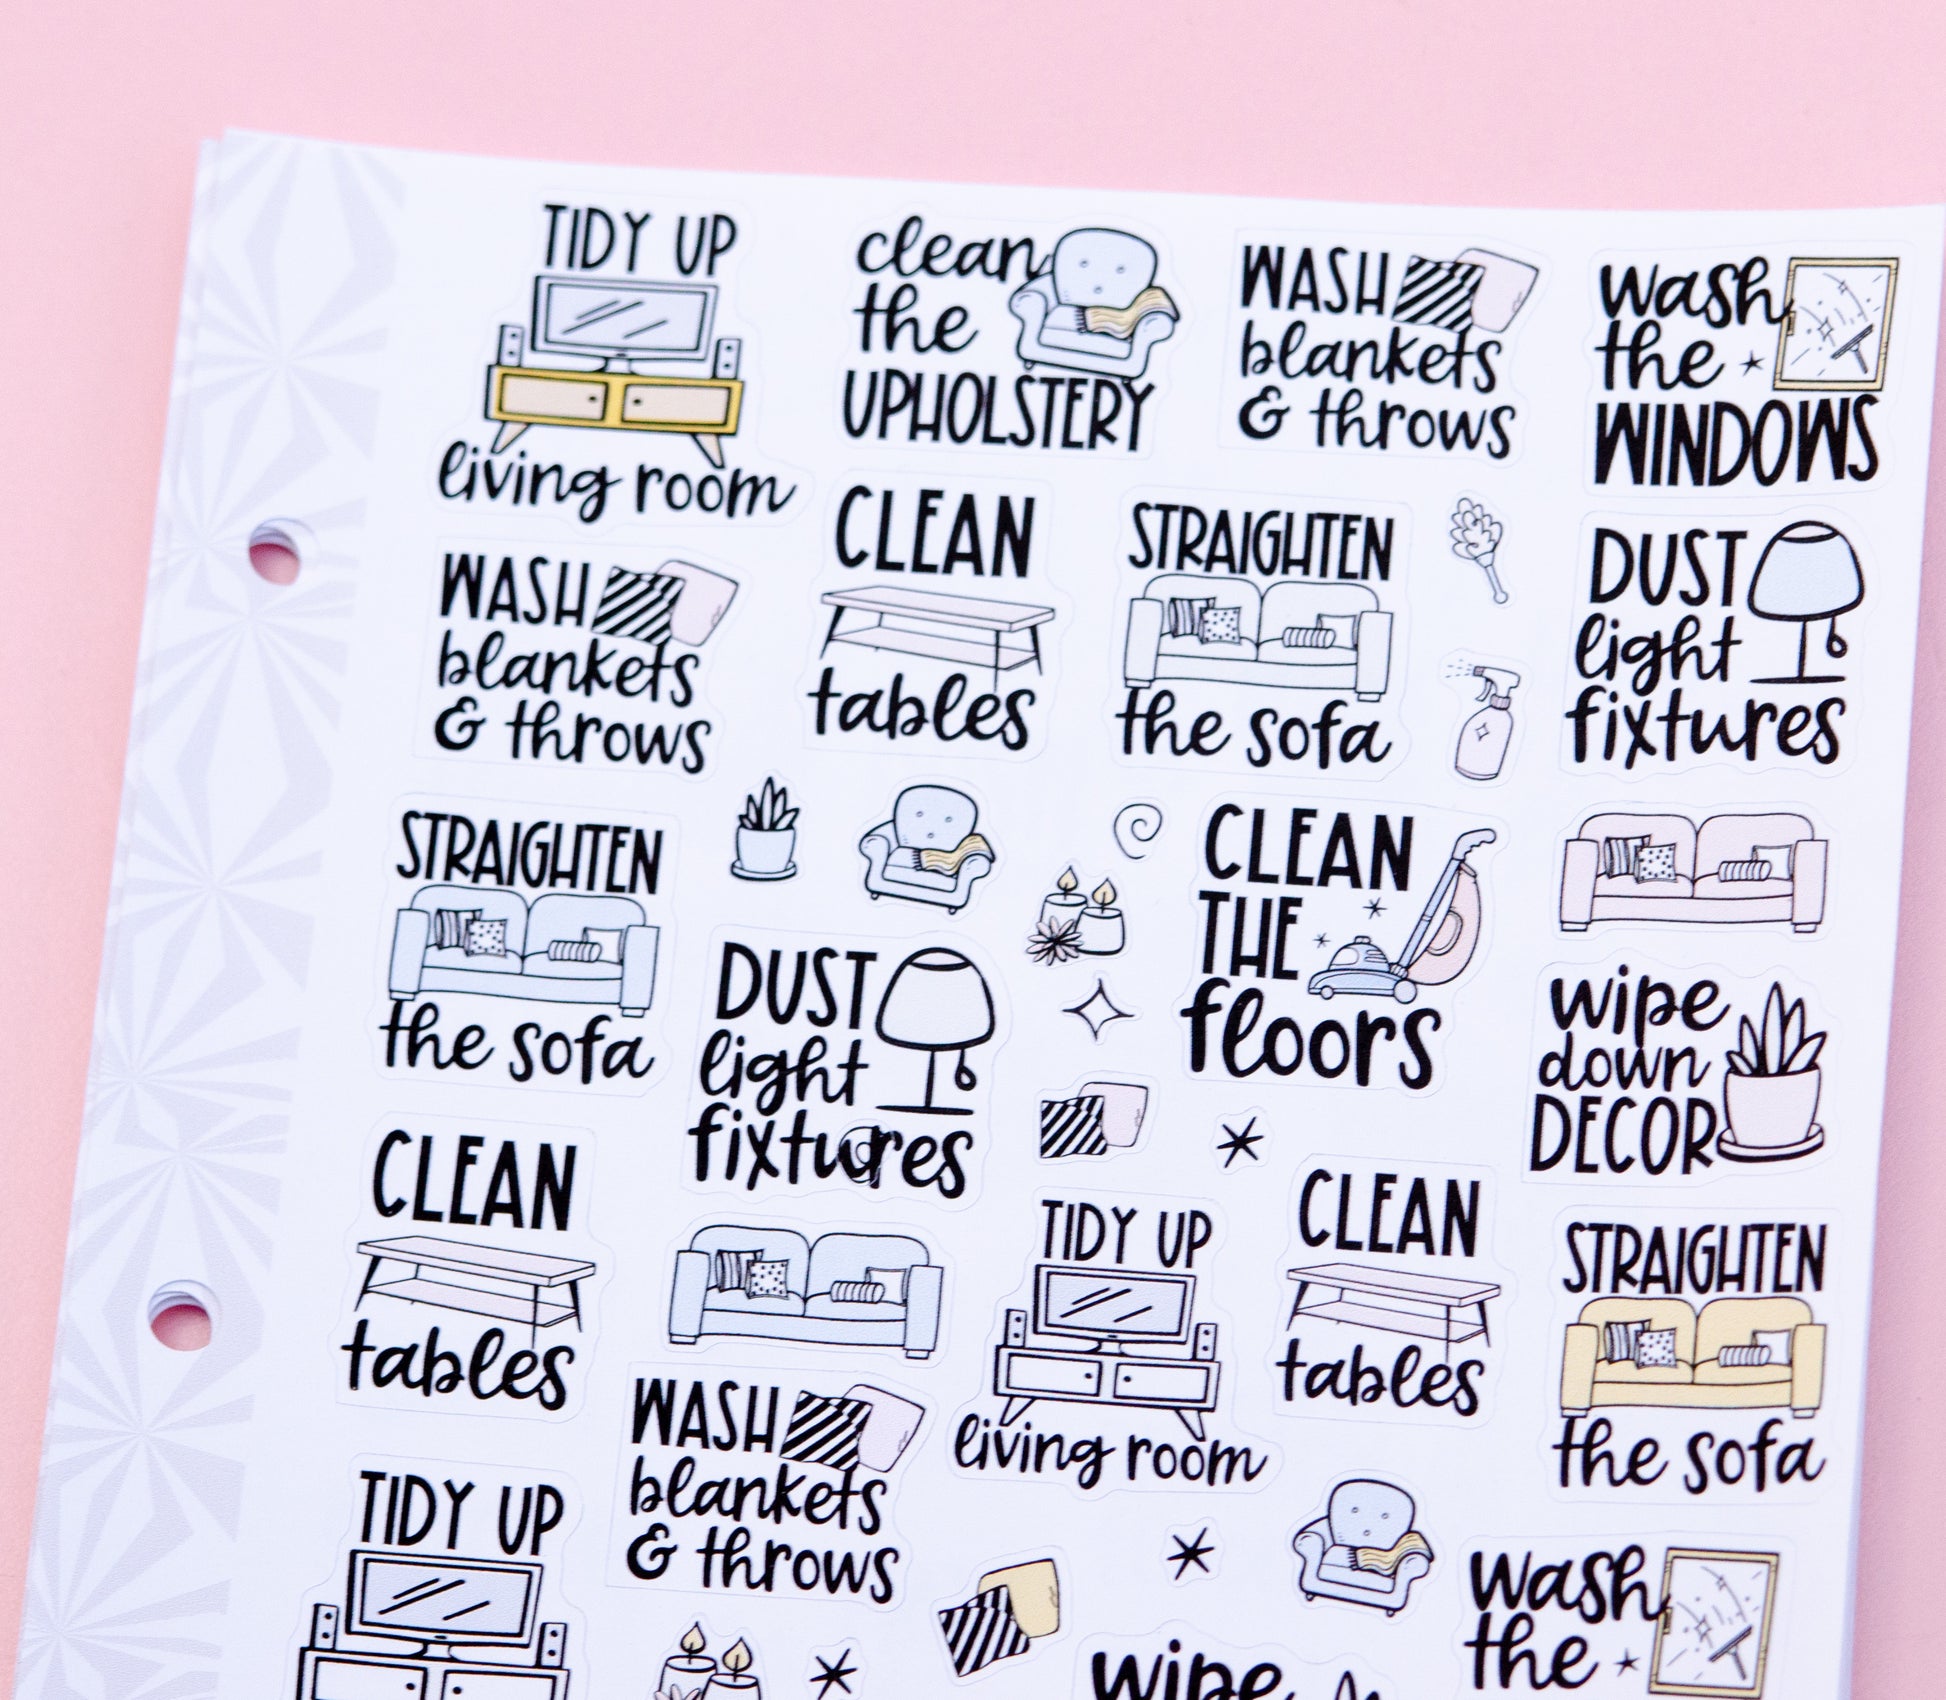 TIDY UP
living room
clean
the
UPHOLSTERY
WASH
blankets
& throws
wash
the
WINDOWS
WASH
blankets
& throws
CLEAN
tables
STRAIGHTEN
the sofa
DUST
light
fixtures
STRAIGHTEN
the sofa
DUST
light
fixtures
CLEAN
THE
floors
wipe
down
DECOR
CLEAN
tables
TIDY UP
living room
CLEAN
tables
STRAIGHTEN
the sofa
WASH
blankets
& throws
TIDY UP
wipe
wash
the